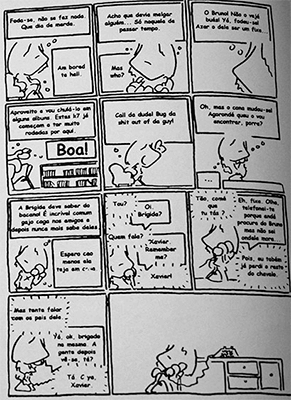 Foda-se, não se faz nada.
Que dia de merda.
Am bored
to hell.
Acho que devia melgar
alguém... Só naquela de
passar tempo.
Mas
who?
O Bruno! Não o vejo
Yá, fodeu-se!
Azar o dele ser um fixe
Aproveito e vou
alguns álbuns. Estas k7 já
começam a tar muito
rodadas por aqui.
Boa!
Call da dude! Bug da
shit out of da guy!
Oh, mas o cona mudou-se!
Agorandé queu o vou
encontrar, porra?
...
A Brigida deve saber do
bacano! É incrível comum
gajo caga nos amigos e
depois nunca mais sabe deles
Espero cao
menos ela
teja em
Tou?
Oi.
Brigida?
Quem fala?
Xavier.
Remember
me?
Xavier!
Tão, comé
que
tu tás?
Eh, fixe. Olha,
telefonei-te
porque andó
procura do Bruno
mas não sei
ondele more...
Pois, eu tabém
já perdi o resto
do chavalo.
Mas tenta falar
com os pais dele.
Yá, ok, brigado
na mesma. A
gente depois
vê-se, tá?
Tá. C'ya,
Xavier.